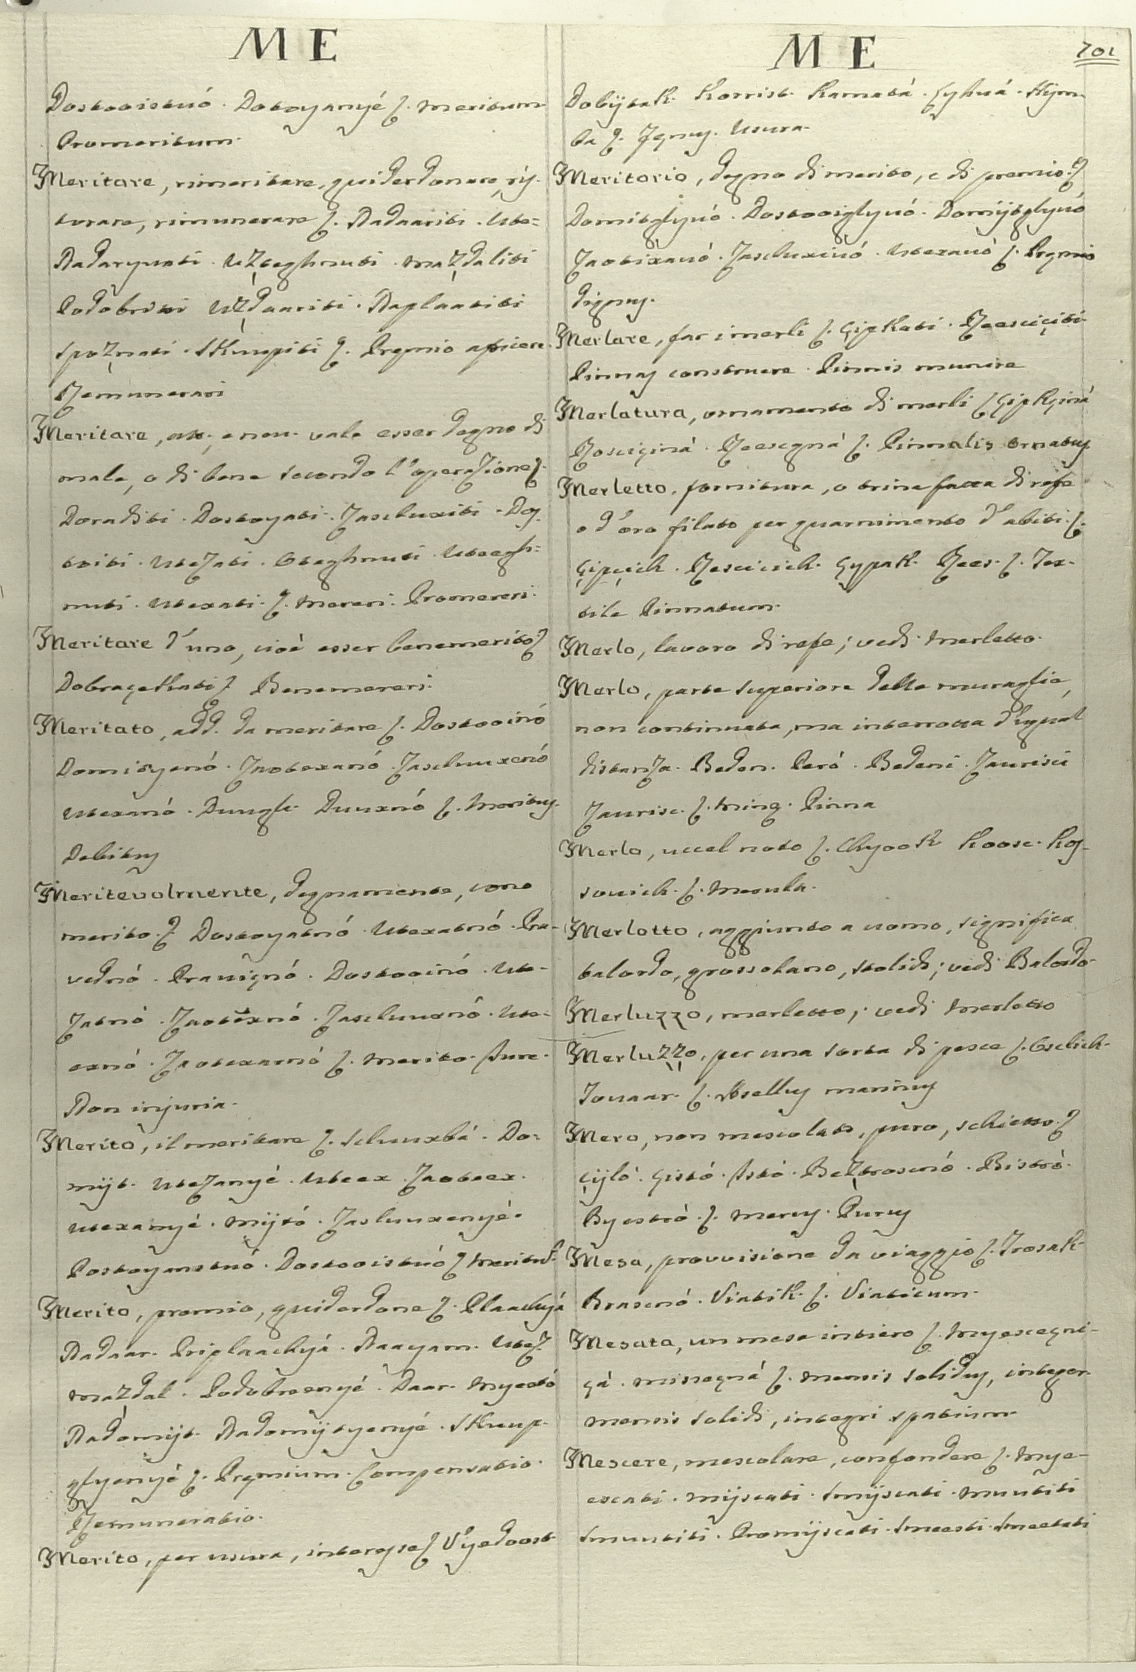 ME
Dostooistuó. Dotoyanyé ʃ. Meritum
Promeritum.
Meritare, rimeritare, guiderdonare, ris-
torare, rimunerare ʃ. Nadaariti. Ute-
Nadaryuati. Uzteghnuti. Mazdaliti
Podobriti Uzdaariti. Naplaatiti
Spoznati. Skuupiti ʃ. Premio afficere.
Remunerari
Meritare, att. e neu. vale esser degno di
male, o di bene secondo l'operazione ʃ.
Doraditi. Dostoyati. Zascluxiti. Dos-
toiti. Utezati. Oteghnuti. Uteegh-
nuti. Utexati. ʃ. Mereri. Promereri.
Meritare d'uno, cioè esser benemerito ʃ
Dobraçekati ʃ Benemereri.
Meritato, add. da meritare ʃ. Dostooinó
Domisyenó. Zaotexanó. Zascluuxenó
Utexanó. Duugh. Duuxnó ʃ. Meritus.
Debitus
Meritevolmente, degnamente, con
merito. ʃ Dostoyatnó. Utexatnó. Pra-
vednó. Prauiçnó. Dostooinó. Ute-
Zatnó. Zaotexnó. Zascluuxnó. Ute-
exnó. Zaotexanó ʃ. Merito. Jure.
Non injuria.
Merito, il meritare ʃ. Scluuxbá. Do-
mijt. Utezanyé. Uteex. Zaoteex.
Utexanyé. Mijtó. Zasluuxenyé.
Postoyanstuó. Dostooistuó ʃ Meritum
Merito, premio, guiderdone ʃ. Plaachyá
Nadaar. Priplaachyá. Naayam. Utez
Mazdal. Podobreenyé. Daar. Myeető
Nadomijt. Nadomijtyenyé. Skuup-
glyenyé ʃ. Premium. Compensatio.
Remuneratio.
Merito, per usura, interesse ʃ Vyedoost
ME
701
Dobijtak. Korrist. Kamatá. Lyhuá. Kijm-
ta ʃ. Usura.
Meritorio, degno di merito, e di premio. ʃ
Domitglyuó. Dostooiglyuó. Domijtglyuó
Zaotixauó. Zascluxiuó. Utexauó ʃ. Premio
dignus.
Merlare, far i merli ʃ. Çipkati. Reesciçiti
Pinnas construere. Pinnis munire
Merlatura, ornamento di merli ʃ Çipkçiná
Rosciçiná. Reesçgná ʃ. Pinnalis ornatus
Merletto, fornitura, o trina fatta di refe
o d'oro filato per guarnimento d'abiti. ʃ.
Çipçich. Rescicich. Çypak. Rees. ʃ. Tex-
tile Pinnatum.
Merlo, lavoro di refe; vedi Merletto.
Merlo, parte superiore delle muraglie,
non continuata, ma interrotta d'egual
distanza. Beden. Peró. Bedeni. Zaurisci
Zaurisc. ʃ. Ming. Pinna
Merlo, uccel noto ʃ. Chyook Koosc. Kos-
souich. ʃ. Merula.
Merlotto, aggiunto a uomo, significa
balordo, grossolano, stolido; vedi Balordo
Merluzzo, merletto; vedi Merletto
Merluzzo, per una sorta di pesce ʃ. Osclich.
Touaar. ʃ. Asellus marinus
Mero, non mescolato, puro, schietto. ʃ
Çijló. Çistó. Istó. Beztroscnó. Bistró.
Byestró. ʃ. Merus. Purus
Mesa, provvisione da viaggio ʃ. Trosak
Brascnó. Viatik. ʃ. Viaticum.
Mesata, un mese intiero ʃ. Myesceçni-
çá. Misseçná ʃ. Mensis solidus, integer
mensis solidi, integri spatium
Mescere, mescolare, confondere ʃ. Mye-
escati. Mijscati. Smijscati. Muutiti
Smuutiti. Promijscati. Smeesti. Smeetati